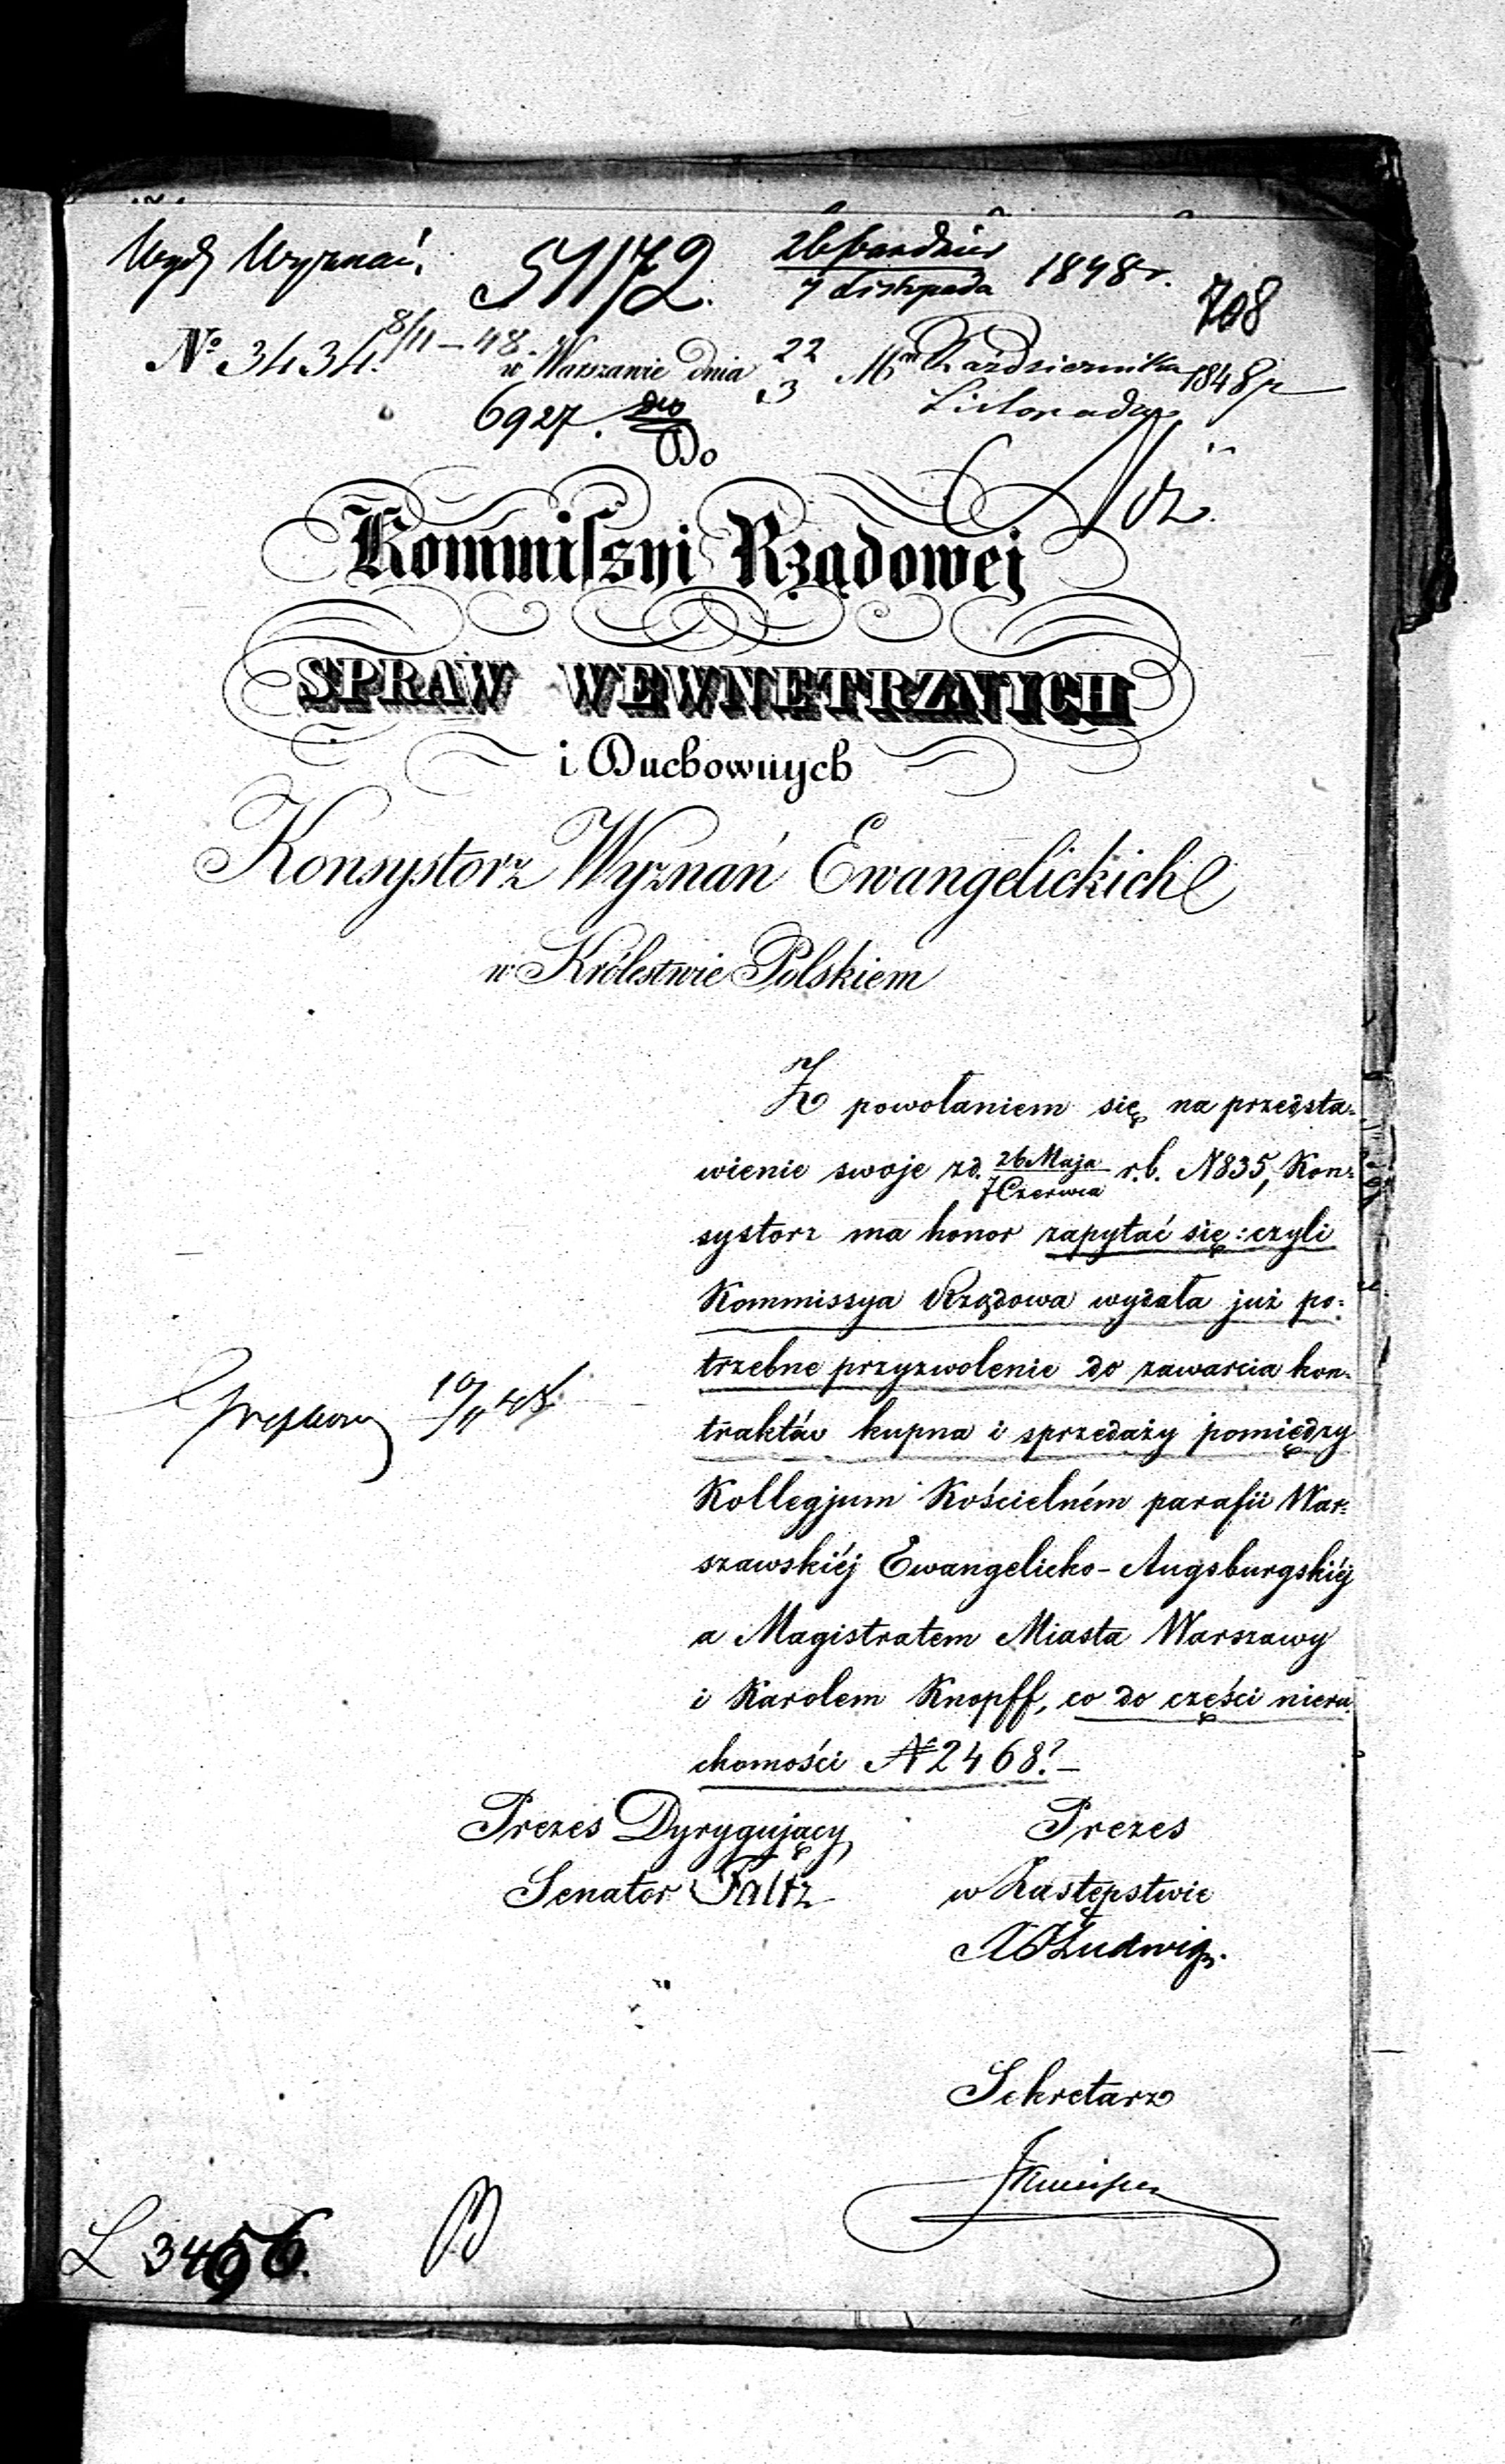 Wydz Wyznań. 51172. 26 Październ / 7 Listopada 1848 r. 708
8/11 – 48.
No 3434. w Warszawie Dnia 22 / 3 Mca Października / Listopada 1848 r
6927.
Do
Kommissyi Rządowej
SPRAW WEWNETRZNYCH
i Duchownych
Konsystorz Wyznań Ewangelickich
w Królestwie Polskiem
Z powołaniem się na przedsta-
wienie swoje zd. 26 Maja / 7 Czerwca r.b. N835, Kon-
systorz ma honor zapytać się: czyli
Kommissya Rządowa wydała już po-
trzebne przyzwolenie do zawarcia kon-
traktów kupna i sprzedaży pomiędzy
Kollegjum Kościelném parafii War-
szawskiéj Ewangelicko-Augsburgskiéj
a Magistratem Miasta Warszawy
i Karolem Knopff, co do części nieru-
chomości N 2468?–
10/11 48.
Prezes Dyrygujący Prezes
Senator Faltz w Zastępstwie
Ludwig.
Sekretarz
L 3456.